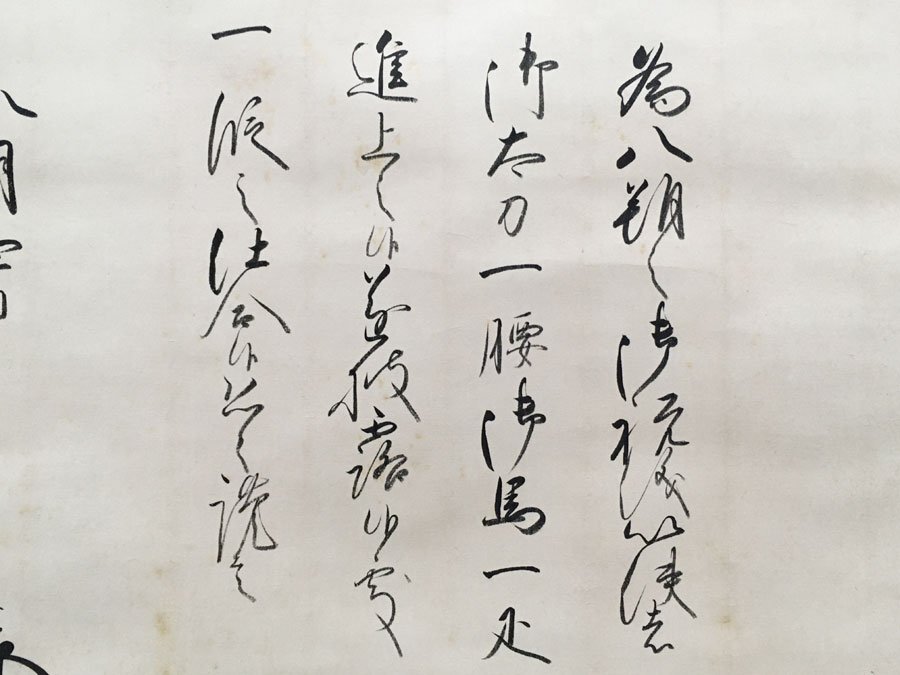 為八朔之御祝儀以使者
御太刀一腰御馬一疋
進上之候遂披露候処
一段之仕合候恐々謹言
八月